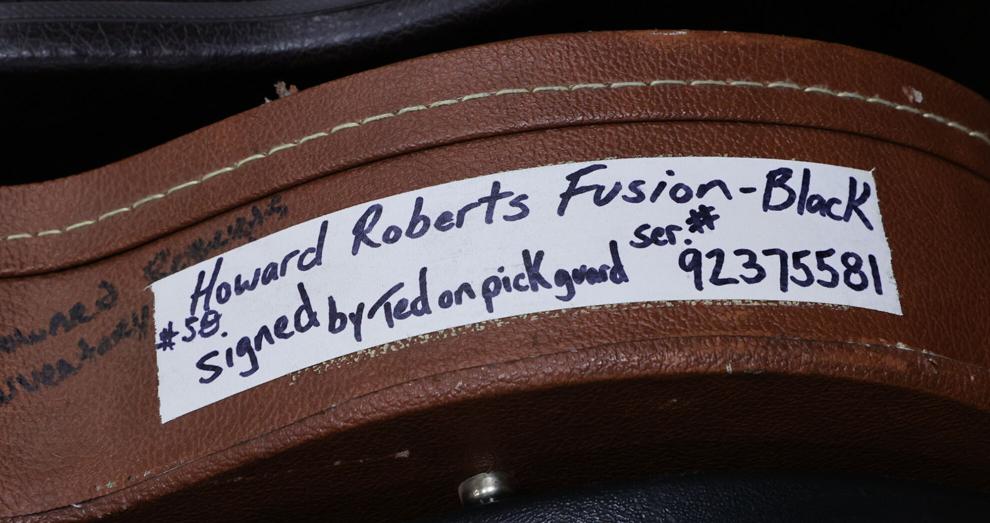 Howard Roberts Fusion-Black
#58. signed by Ted on pickguard
ser.# 92375581